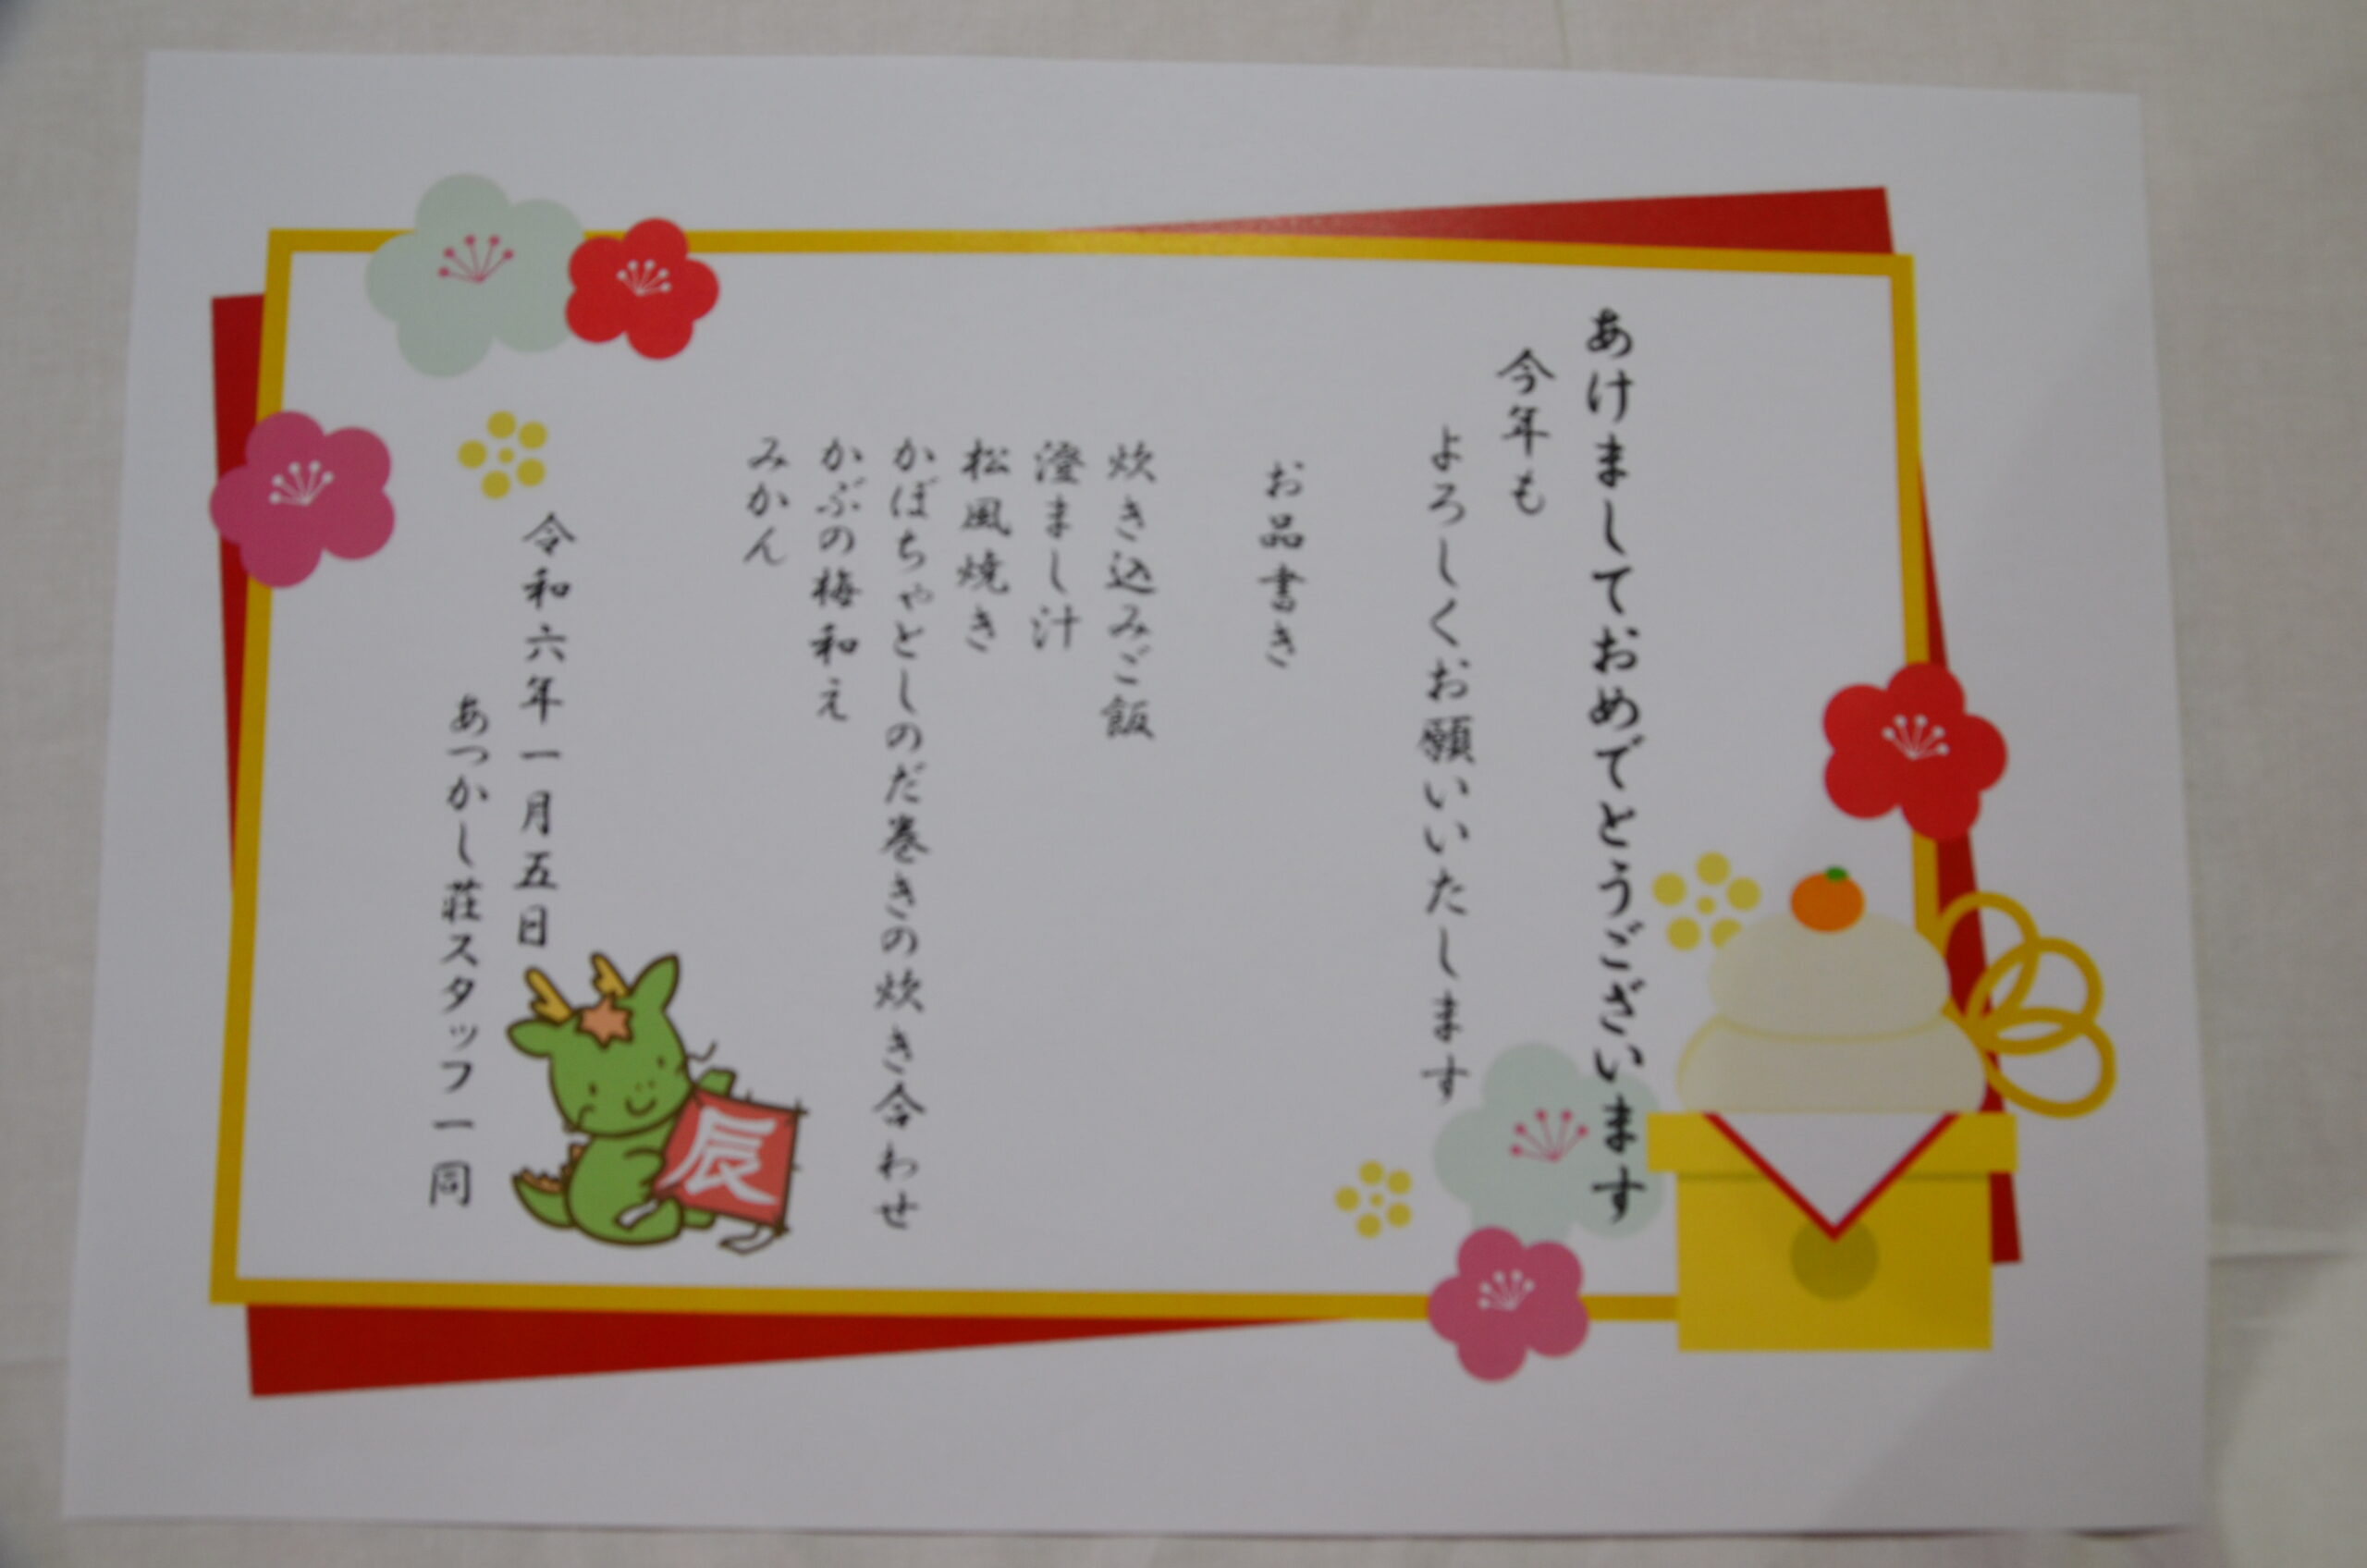 あけましておめでとうございます
今年も
よろしくお願いいたします
お品書き
炊き込みご飯
澄まし汁
松風焼き
かぼちゃとしのだ巻きの炊き合わせ
かぶの梅和え
みかん
令和六年一月五日
あつかし荘スタッフ一同
辰